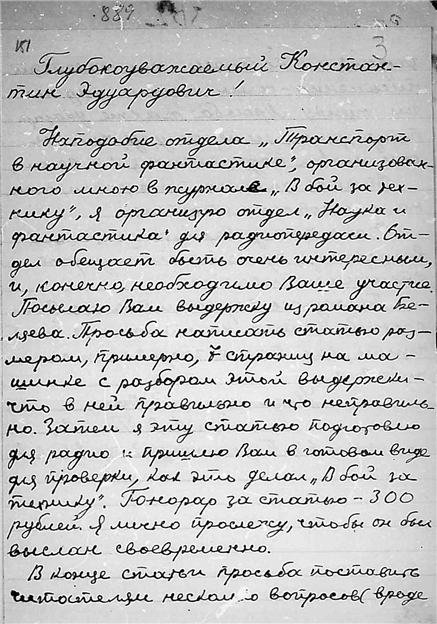 Глубокоуважаемый Констан-
тин Эдуардович!
Наподобие отдела „Транспорт
в научной фантастике", организован-
ного мною в журнале „В бой за тех-
нику", я организую отдел „Наука и
фантастика" для радиопередачи. От-
дел обещает быть очень интересным,
и, конечно, необходимо Ваше участие.
Посылаю Вам выдержку из романа Бе-
ляева. Просьба написать статью раз-
мером, примерно, 7 страниц на ма-
шинке с разбором этой выдержки –
что в ней правильно и что неправиль-
но. Затем я эту статью подготовлю
для радио и пришлю Вам в готовом виде
для проверки, как это делал „В бой за
технику". Гонорар за статью – 300
рублей. Я лично прослежу, чтобы он был
выслан своевременно.
В конце статьи просьба поставить
читателям несколько вопросов (вроде